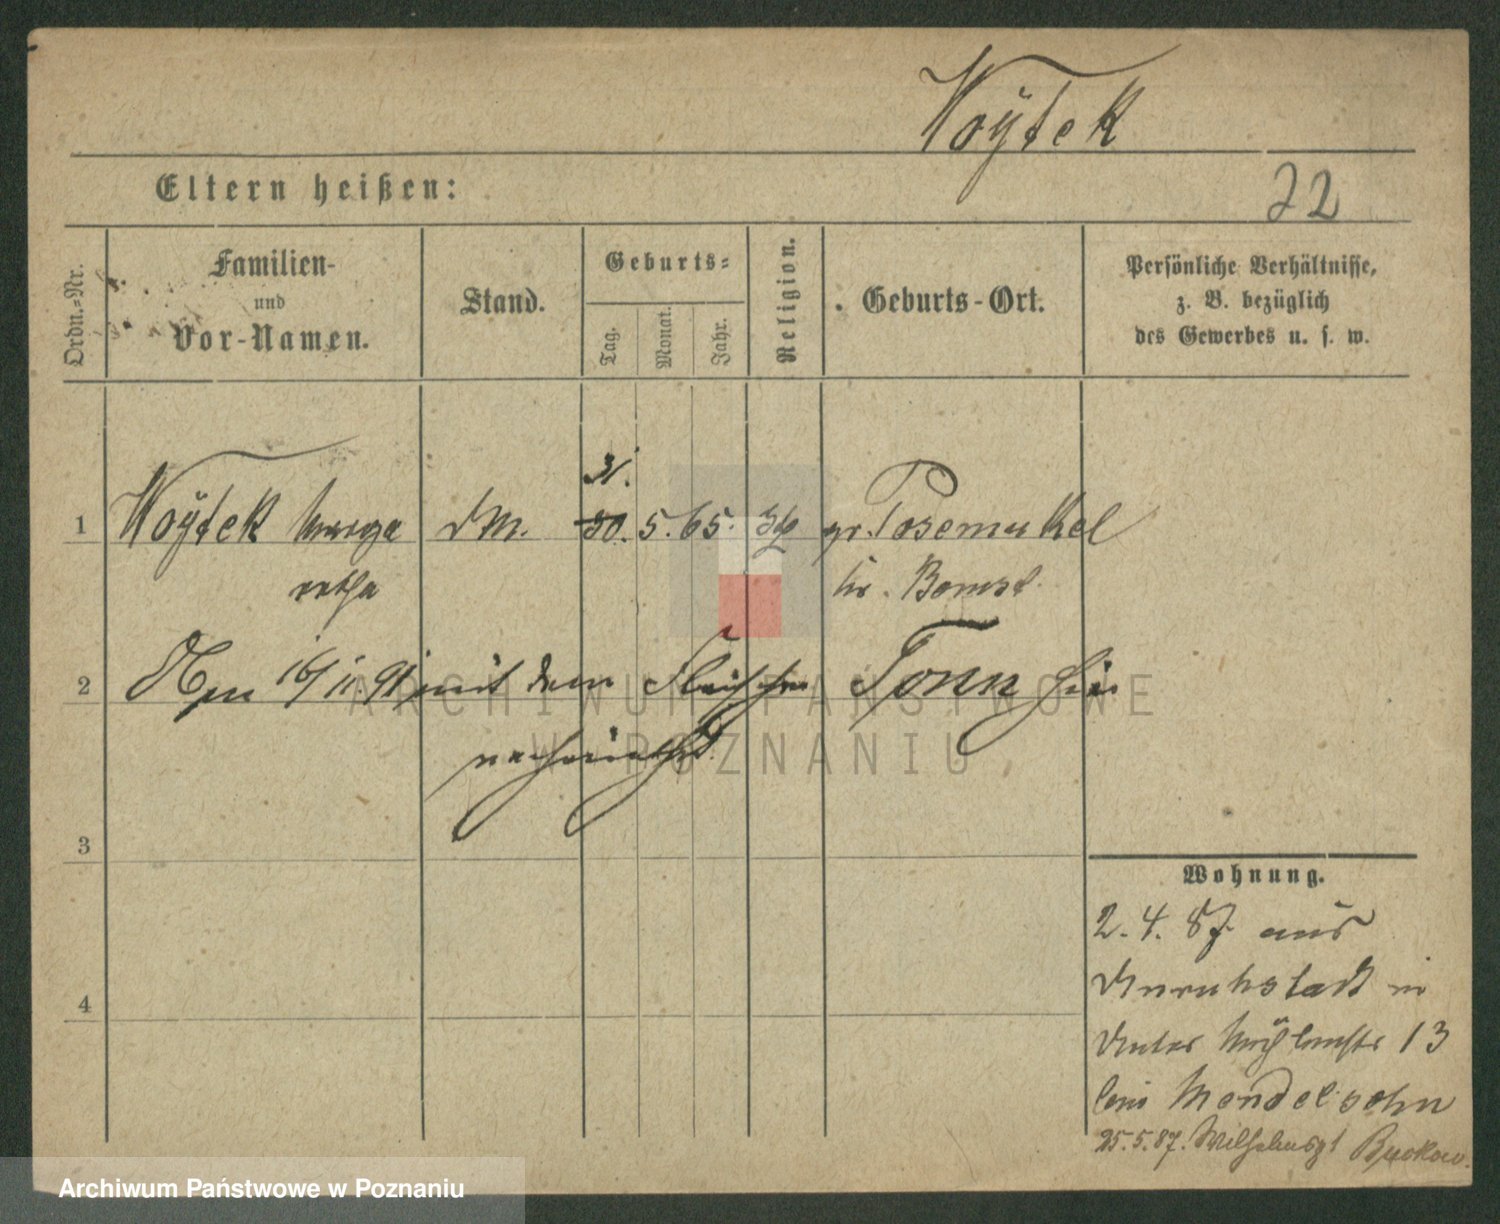 Woÿtek
22
Eltern heißen:
Ordn.-Nr.
Familien-
und
Vor-Namen.
Stand.
Geburts-
Tag.
Monat.
Jahr.
Religion.
Geburts-Ort.
Persönliche Verhältnisse,
z. B. bezüglich
des Gewerbes u. s. w.
31.
1 Woÿtek Marga DM. 30. 5. 65. gr. Posemukel
retha Kr. Bomst
2 Am 16/11.91 mit dem Fleischer Tonn hier
verheirathet.
3
4
Wohnung.
2.4.87 aus
Unruhstadt in
Unter Mühlenstr 13
bei Mendelsohn
25.5.87. Wilhelmspl Buckow.
ARCHIWUM PAŃSTWOWE
W POZNANIU
Archiwum Państwowe w Poznaniu